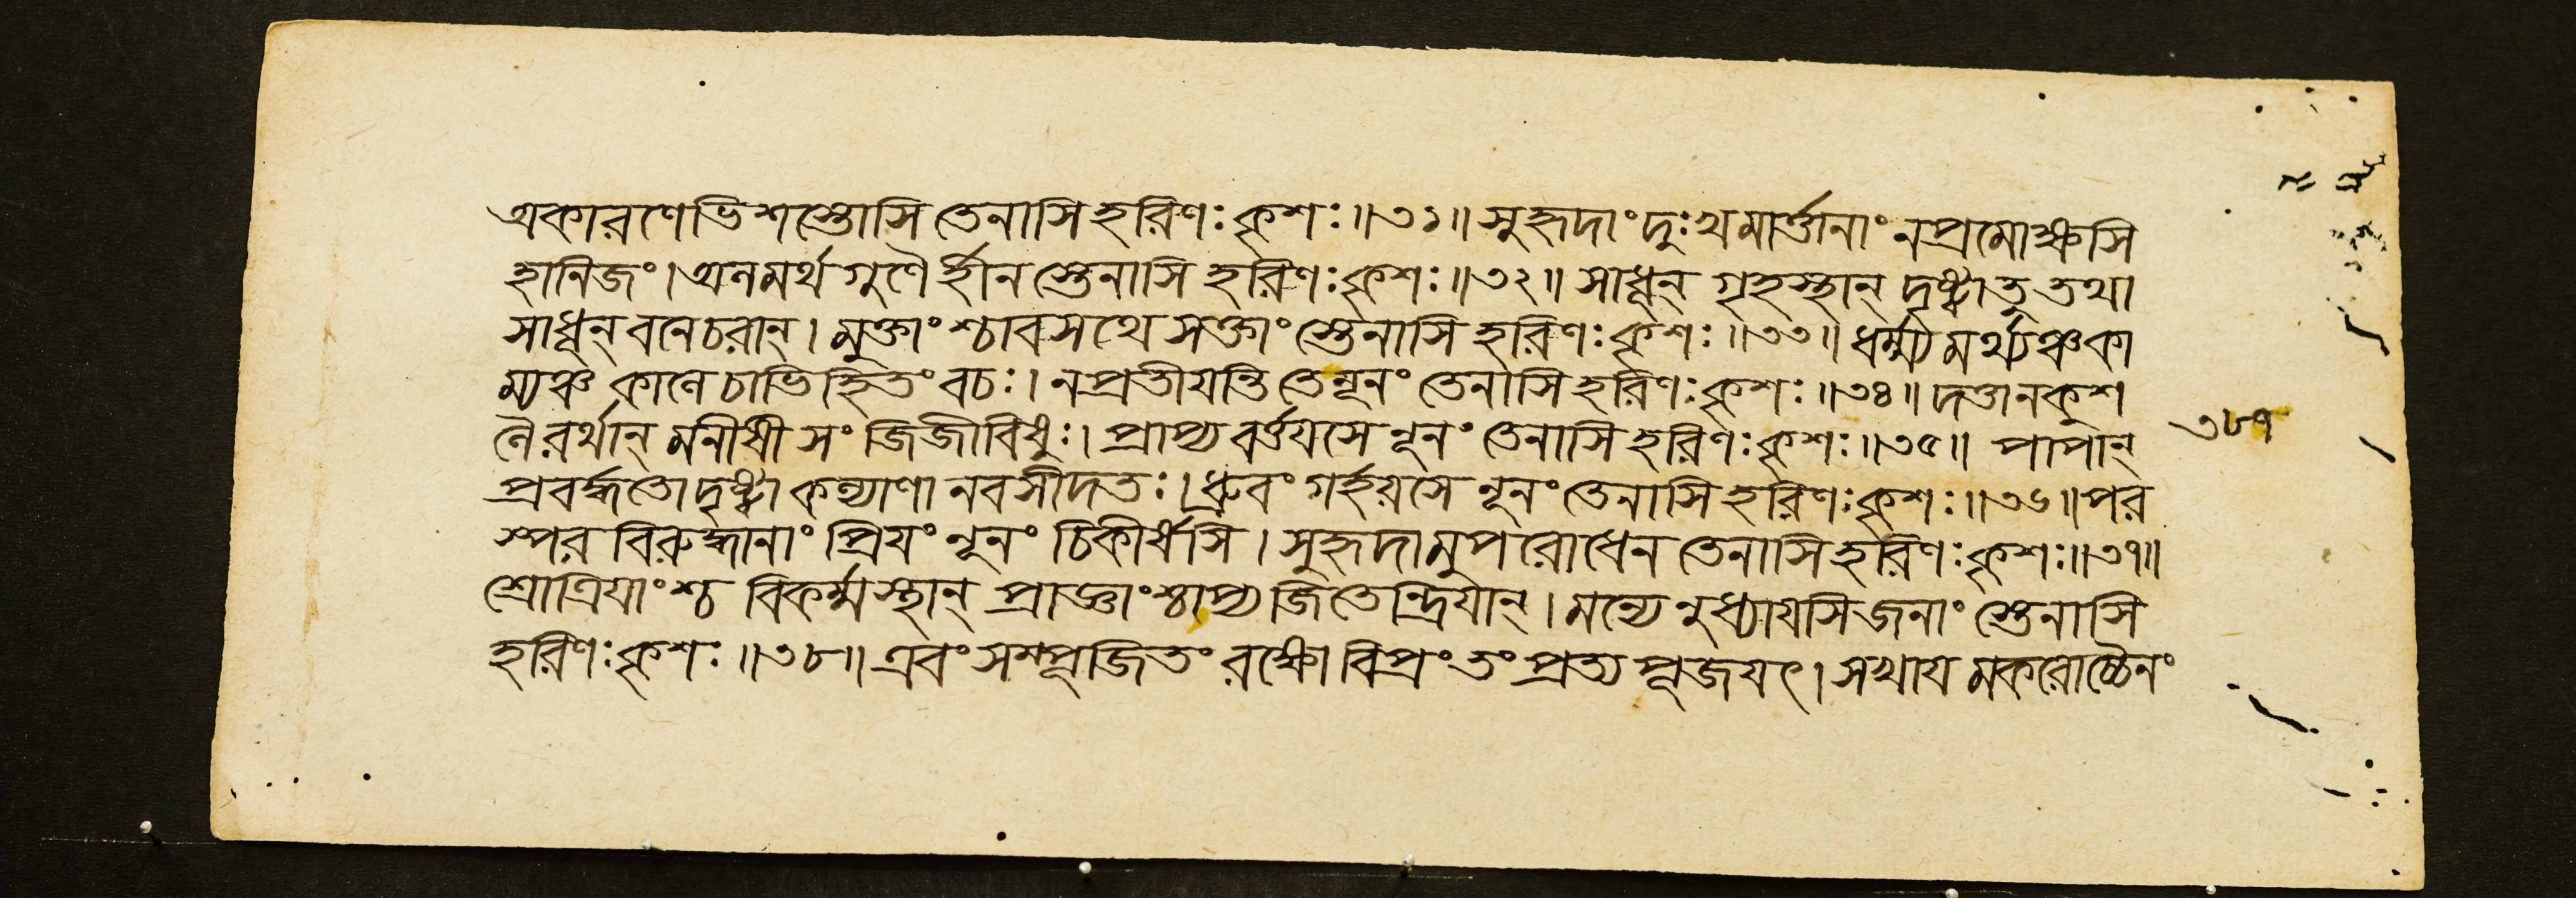 অকারণেভিশস্তোসি তেনাসি হরিণঃ কৃশঃ ॥৩১॥ সুহৃদাং দুঃখমার্ত্তানাং নপ্রমোক্ষসি
হানিজং । অনমর্থ গুণৈর্হীন স্তেনাসি হরিণঃ কৃশঃ ॥৩২॥ সাধূন্ গৃহস্থান্ দৃষ্ট্বাতু তথা
সাধূন্ বনেচরান্ । মুক্তাংশ্চাবসথে সক্তাং স্তেনাসি হরিণঃ কৃশঃ ॥৩৩॥ ধর্ম্ম্যমর্থ্যঞ্চকা
ম্যঞ্চ কালেচাভিহিতং বচঃ । নপ্রতীযন্তি তেনূনং তেনাসি হরিণঃ কৃশঃ ॥৩৪॥ দত্তানকুশ
লৈরর্থান্ মনীষী সংজিজীবিষুঃ । প্রাপ্য বর্ত্তযসে নূনং তেনাসি হরিণঃ কৃশঃ ॥৩৫॥ পাপান্
৩৮৭
প্রবর্দ্ধতো দৃষ্ট্বা কল্যাণা নবসীদতঃ । ধ্রুবং গর্হয়সে নূনং তেনাসি হরিণঃ কৃশঃ ॥৩৬॥ পর
স্পর বিরুদ্ধানাং প্রিযং নূনং চিকীর্ষসি । সুহৃদামুপরোধেন তেনাসি হরিণঃ কৃশঃ ॥৩৭॥
শ্রোত্রিযাংশ্চ বিকর্ম্মস্থান্ প্রাজ্ঞাংশ্চাপ্য জিতেন্দ্রিযান্ । মন্যেনুধ্যাযসি জনাং স্তেনাসি
হরিণঃ কৃশঃ ॥৩৮॥ এবং সম্পূজিতং রক্ষো বিপ্রং তং প্রত্য পূজযৎ । সখায মকরোচ্চৈনং